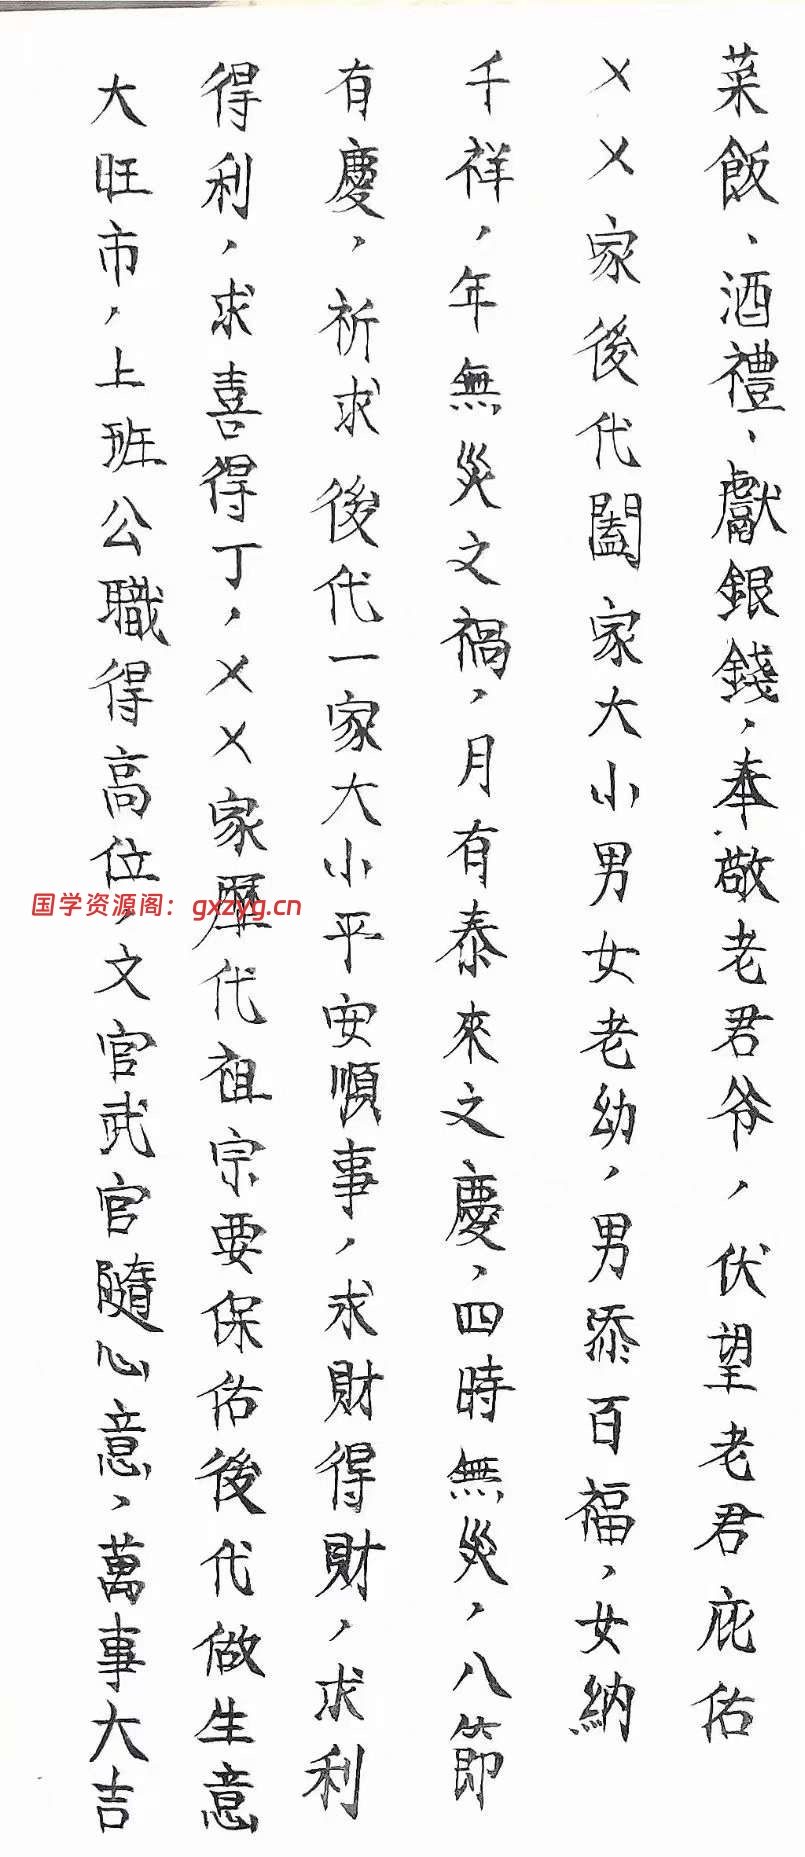 菜飯、酒禮、獻銀錢，奉敬老君爷，伏望老君庇佑
××家後代闔家大小男女老幼，男添百福，女納
千祥，年無災之禍，月有泰來之慶，四時無災，八節
有慶，祈求後代一家大小平安順事，求財得財，求利
得利，求喜得丁，××家歷代祖宗要保佑後代做生意
大旺市，上班公職得高位，文官武官隨心意，萬事大吉
国学资源阁：gxzyg.cn